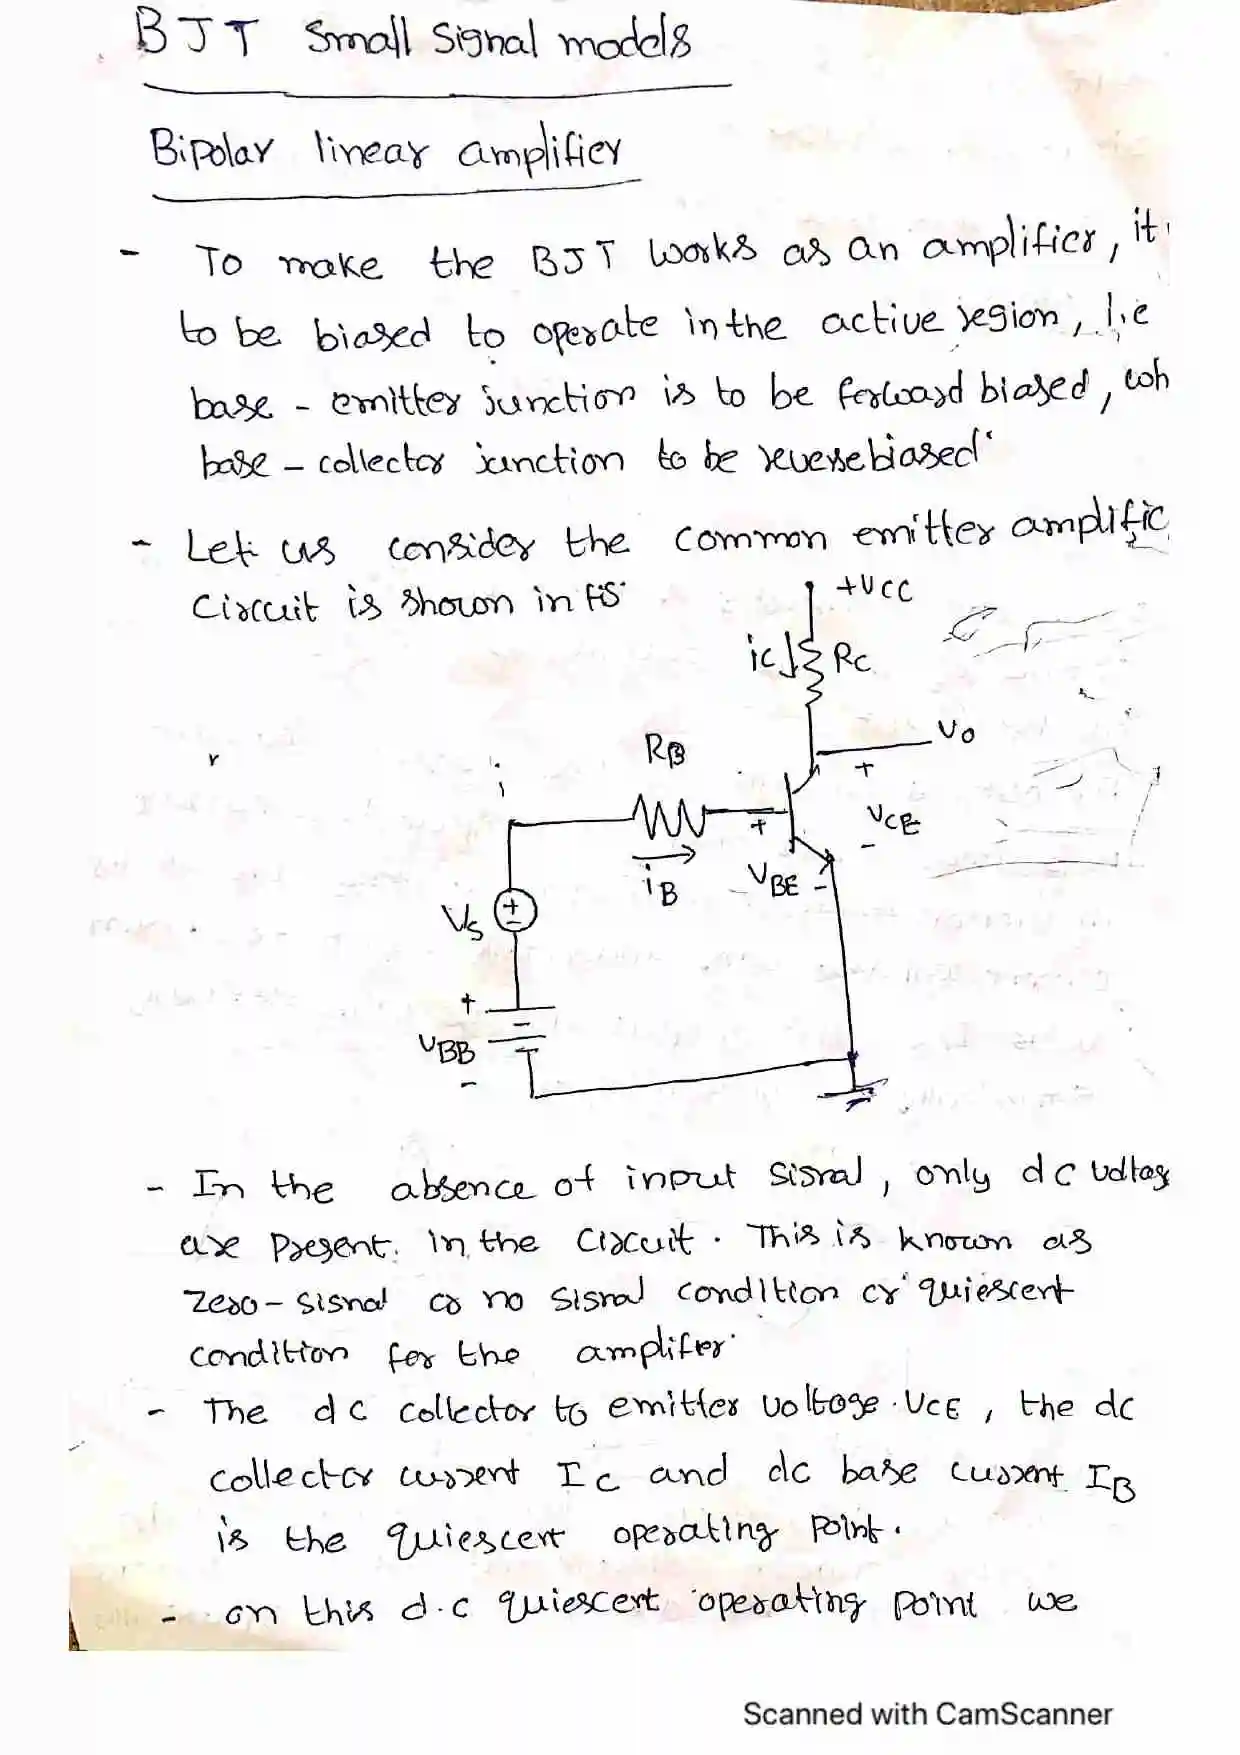 BJT Small Signal models
Bipolar linear amplifier
- To make the BJT works as an amplifier, it
to be biased to operate in the active region, I.e
base - emitter junction is to be forward biased, wh
base - collector junction to be reverse biased.
- Let us consider the common emitter amplific
Circuit is shown in fig.
+VCC
ic RC
Vo
RB
+
+
VCE
-
iB
VBE -
Vs
+
-
+
VBB
-
- In the absence of input signal, only dc voltag
are present. in the circuit. This is known as
Zero - signal or no signal condition or quiescent
condition for the amplifier.
- The dc collector to emitter voltage VCE, the dc
collector current IC and dc base current IB
is the quiescent operating point.
- on this d.c quiescent operating point we
Scanned with CamScanner